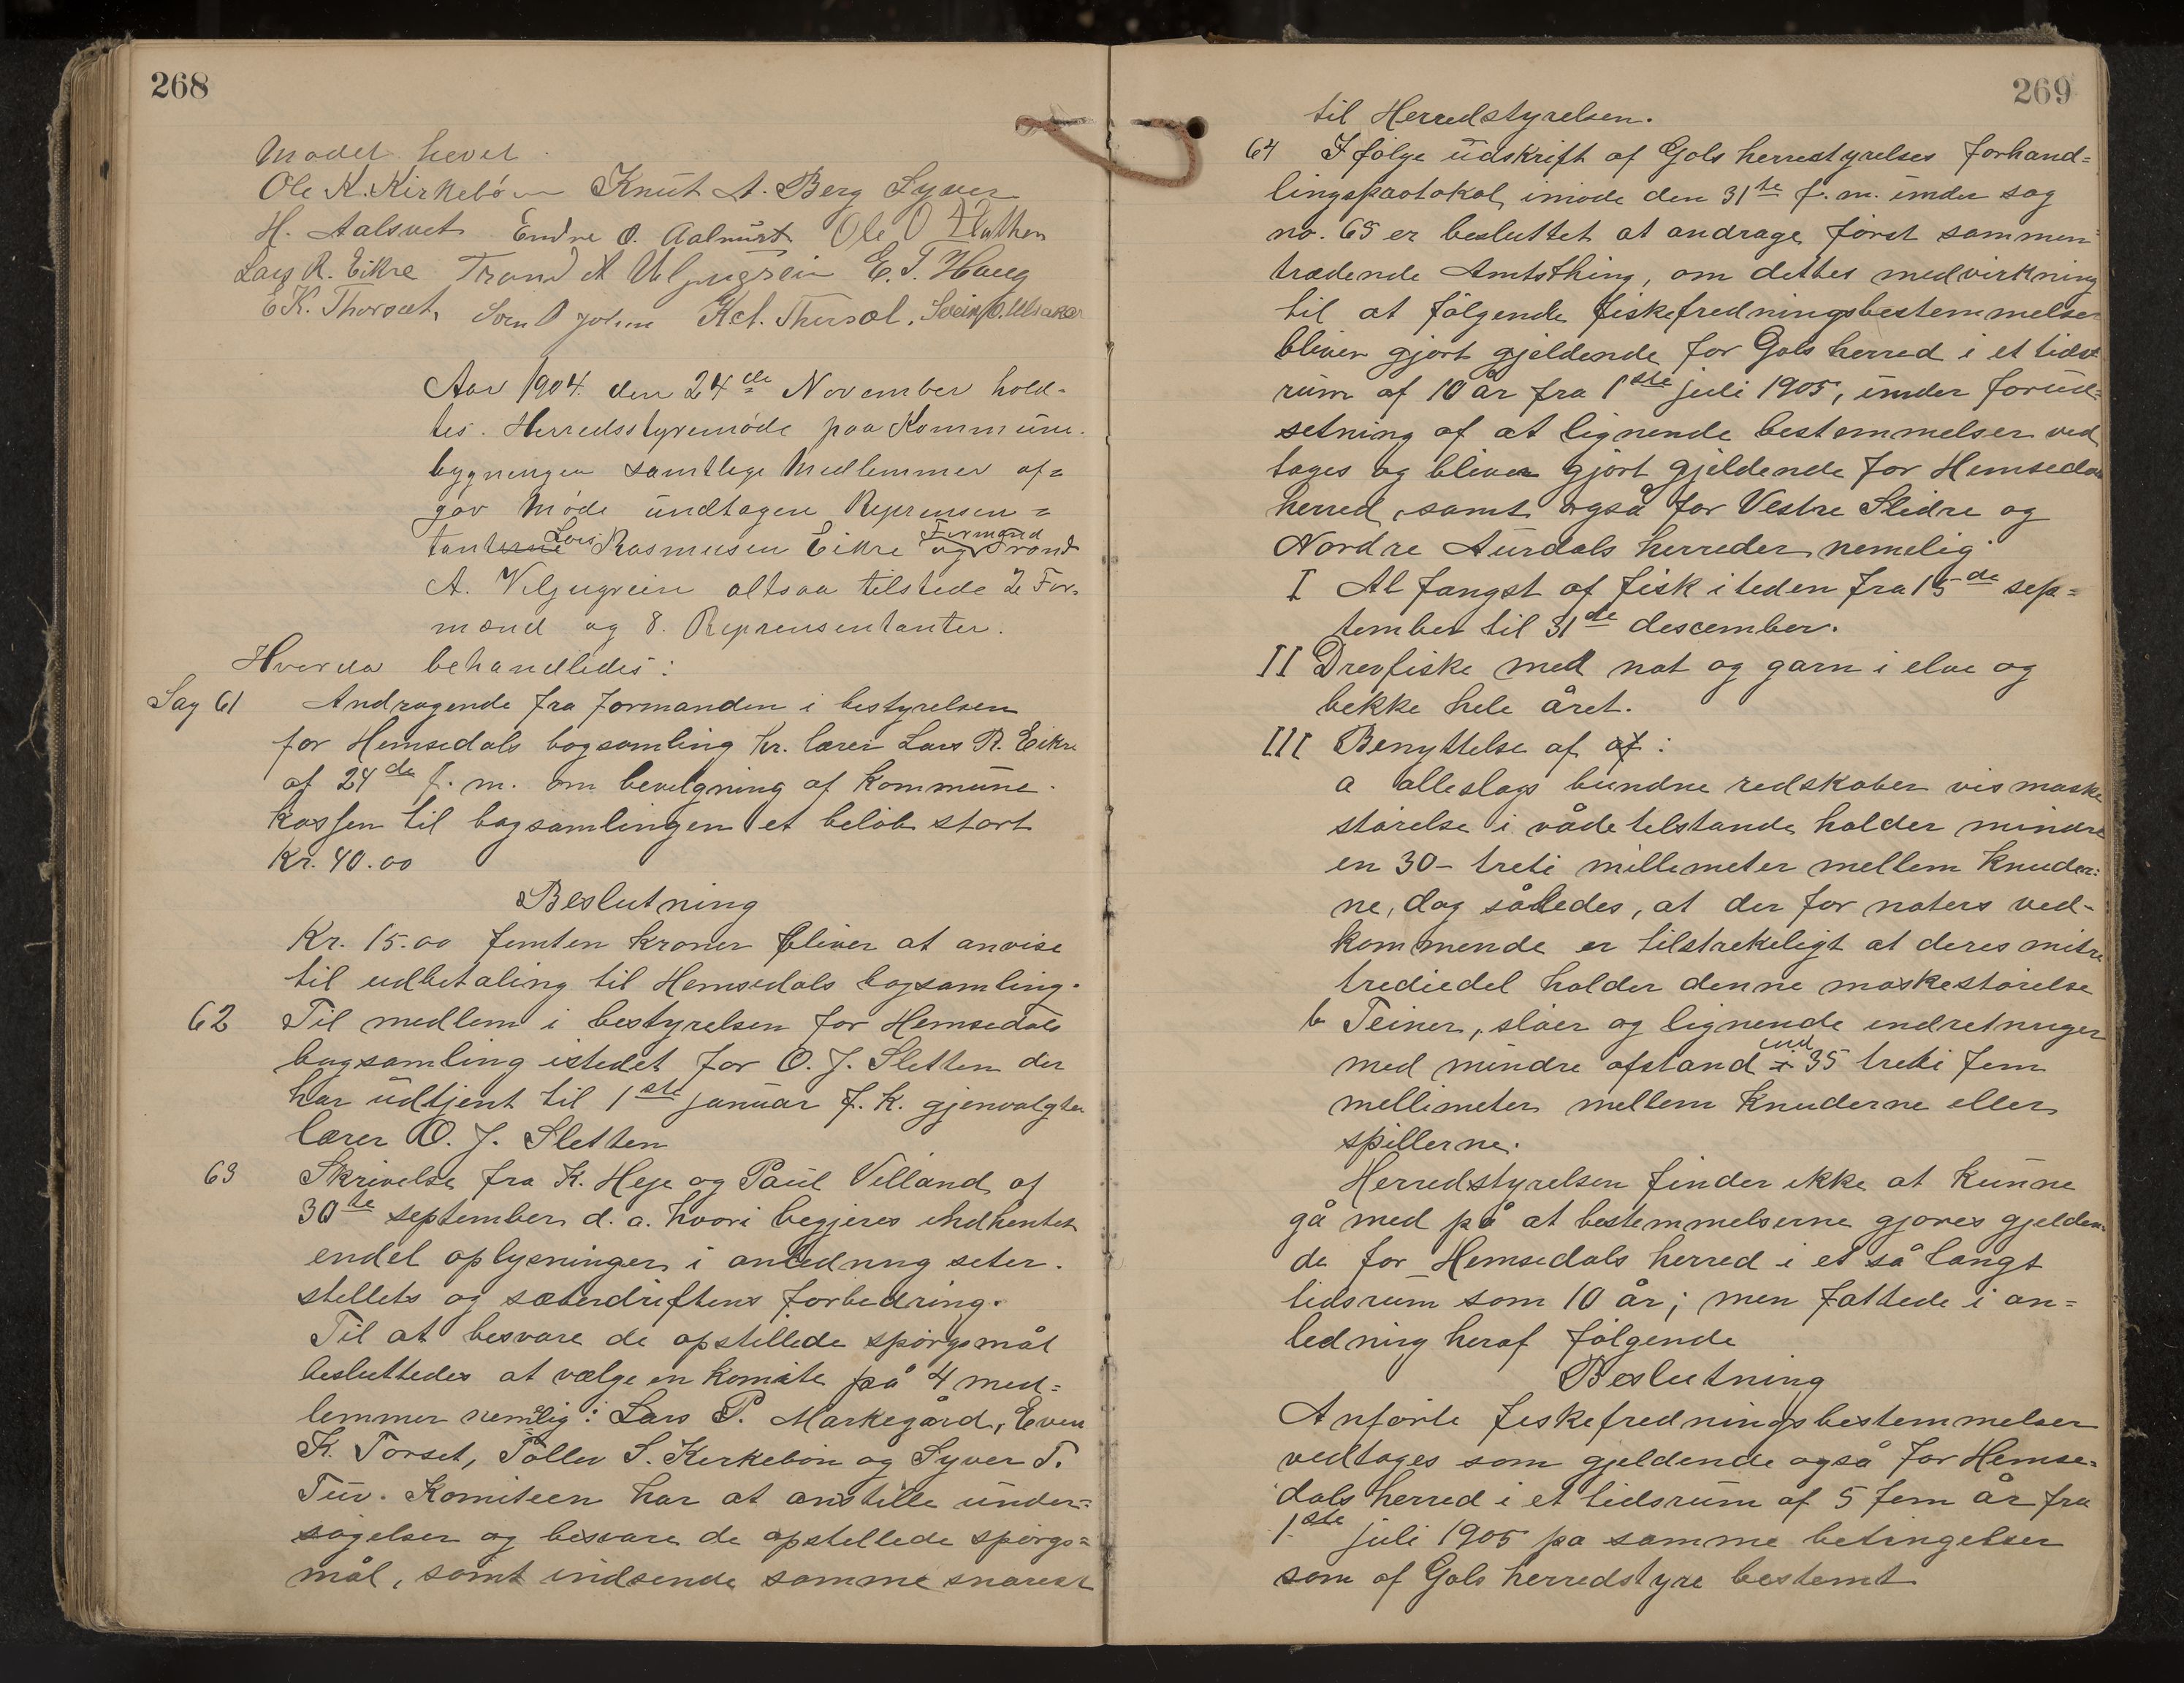 268
Mødet hevet.
Ole K. Kirkebøen Knut A. Berg Syver
H. Aalsvet Endre O. Ole O
Lars R. Eikre Trond A E. T. Haug
E K. Thorset, Svein O.
Aar 1904. den 24de November hold-
tes. Herredsstyremøde paa Kommune.
bygningen samtlige Medlemmer af=
gav Møde undtagen Reprensen=
tanterne Lars Rasmusen Eikre og Formand Trond
A. altsaa tilstede 2 For-
mænd og 8. Reprensentanter.
Hvorda behandledes:
Sag 61 Andragende fra formanden i bestyrelsen
for Hemsedals bogsamling hr. lærer Lars R. Eikre
af 24de f. m. om bevilgning af kommune-
kassen til bogsamlingen et beløb stort
Kr. 40.00
Beslutning
Kr. 15.00 femten kroner bliver at anvise
til udbetaling til Hemsedals bogsamling.
62 Til medlem i bestyrelsen for Hemsedals
bogsamling istedet for O. J. Sletten der
har udtjent til 1ste januar f. k. gjenvalgtes
lærer O. J. Sletten
63 Skrivelse fra K. Heje og Paul Villand af
30te september d. a. hvori begjeres indhentet
endel oplysninger i anledning seter-
stellets og sæterdriftens forbedring.
Til at besvare de opstillede spørgsmål
besluttedes at vælge en komite på 4 med=
lemmer nemlig: Lars P. Markegård, Even
K. Torset, Tollev S. Kirkebøn og Syver T.
Tuv. Komiteen har at anstille under=
søgelser og besvare de opstillede spørgs=
mål, samt indsende samme snarest
269
til Herredstyrelsen.
64 Ifølge udskrift af Gols herrestyrelses forhand=
lingsprotokol, i møde den 31te f. m. under sag
no. 69 er besluttet at andrage først sammen=
trædende Amtsthing, om dettes medvirkning
til at følgende fiskefredningsbestemmelser
bliver gjort gjeldende for Gols herred i et tids=
rum af 10 år fra 1ste juli 1905, under forud=
setning af at lignende bestemmelser ved
tages og bliver gjort gjeldende for Hemsedals
herred, samt også for Vestre Slidre og
Nordre Aurdals herreder nemelig:
I Al fangst af fisk i tiden fra 15de sep=
tember til 31de descember.
II Drevfiske med not og garn i elve og
bekke hele året.
III Benyttelse af af:
a alleslags bundne redskaber vis maske
størelse i våde tilstande holder mindre
en 30 - treti millimeter mellem knuder=
ne, dog således, at der for noters ved-
kommende er tilstrekeligt at deres mitre
trediedel holder denne maskestørelse
b Teiner, slåer og lignende indretninger
med mindre afstand end i 35 treti fem
mellimeter mellem knuderne eller
spillerne.
Herredstyrelsen finder ikke at kunne
gå med på at bestemmelserne gjøres gjelden-
de for Hemsedals herred i et så langt
tidsrum som 10 år; men fattede i an=
ledning heraf følgende
Beslutning
Anførte fiskefredningsbestemmelser
vedtages som gjeldende også for Hemse=
dals herred i et tidsrum af 5 fem år fra
1ste juli 1905 pa samme betingelser
som af Gols herredstyre bestemt